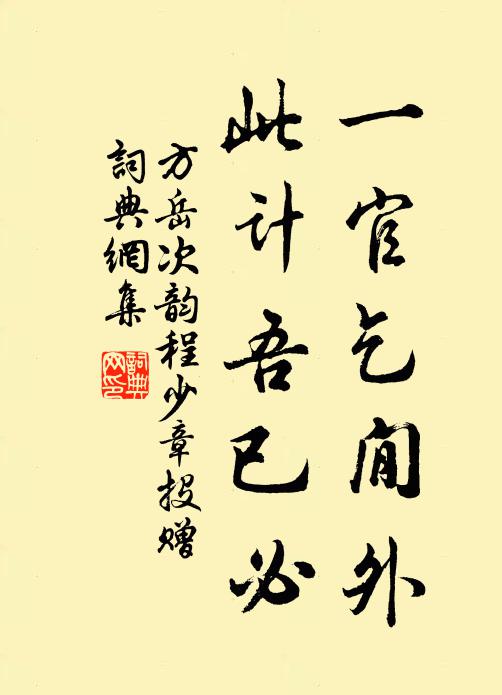 一官乞閒外
此计吾已必
方岳次韵程少章投赠
詞典網集
詞典网印